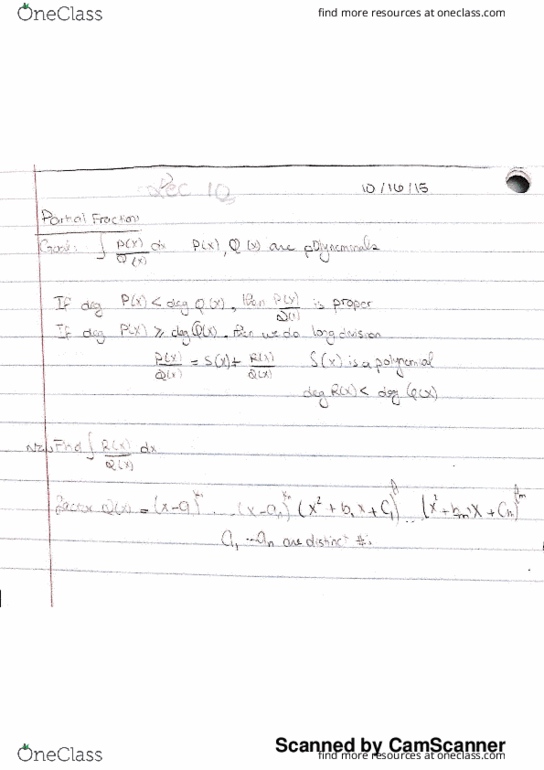 OneClass
find more resources at oneclass.com
Lec 10
10/16/15
Partial Fraction
Goal: ∫ P(x)/Q(x) dx P(x), Q(x) are polynomials
If deg P(x) < deg Q(x), then P(x)/Q(x) is proper
If deg P(x) ≥ deg Q(x), then we do long division
P(x)/Q(x) = S(x) + R(x)/Q(x) S(x) is a polynomial
deg R(x) < deg Q(x)
Find ∫ R(x)/Q(x) dx
Factor Q(x) = (x-a) ... (x-aₙ) (x² + b₁x + C₁) ... (x² + bₘx + Cₘ)
a₁ ... aₙ are distinct #s
Scanned by CamScanner
OneClass
find more resources at oneclass.com